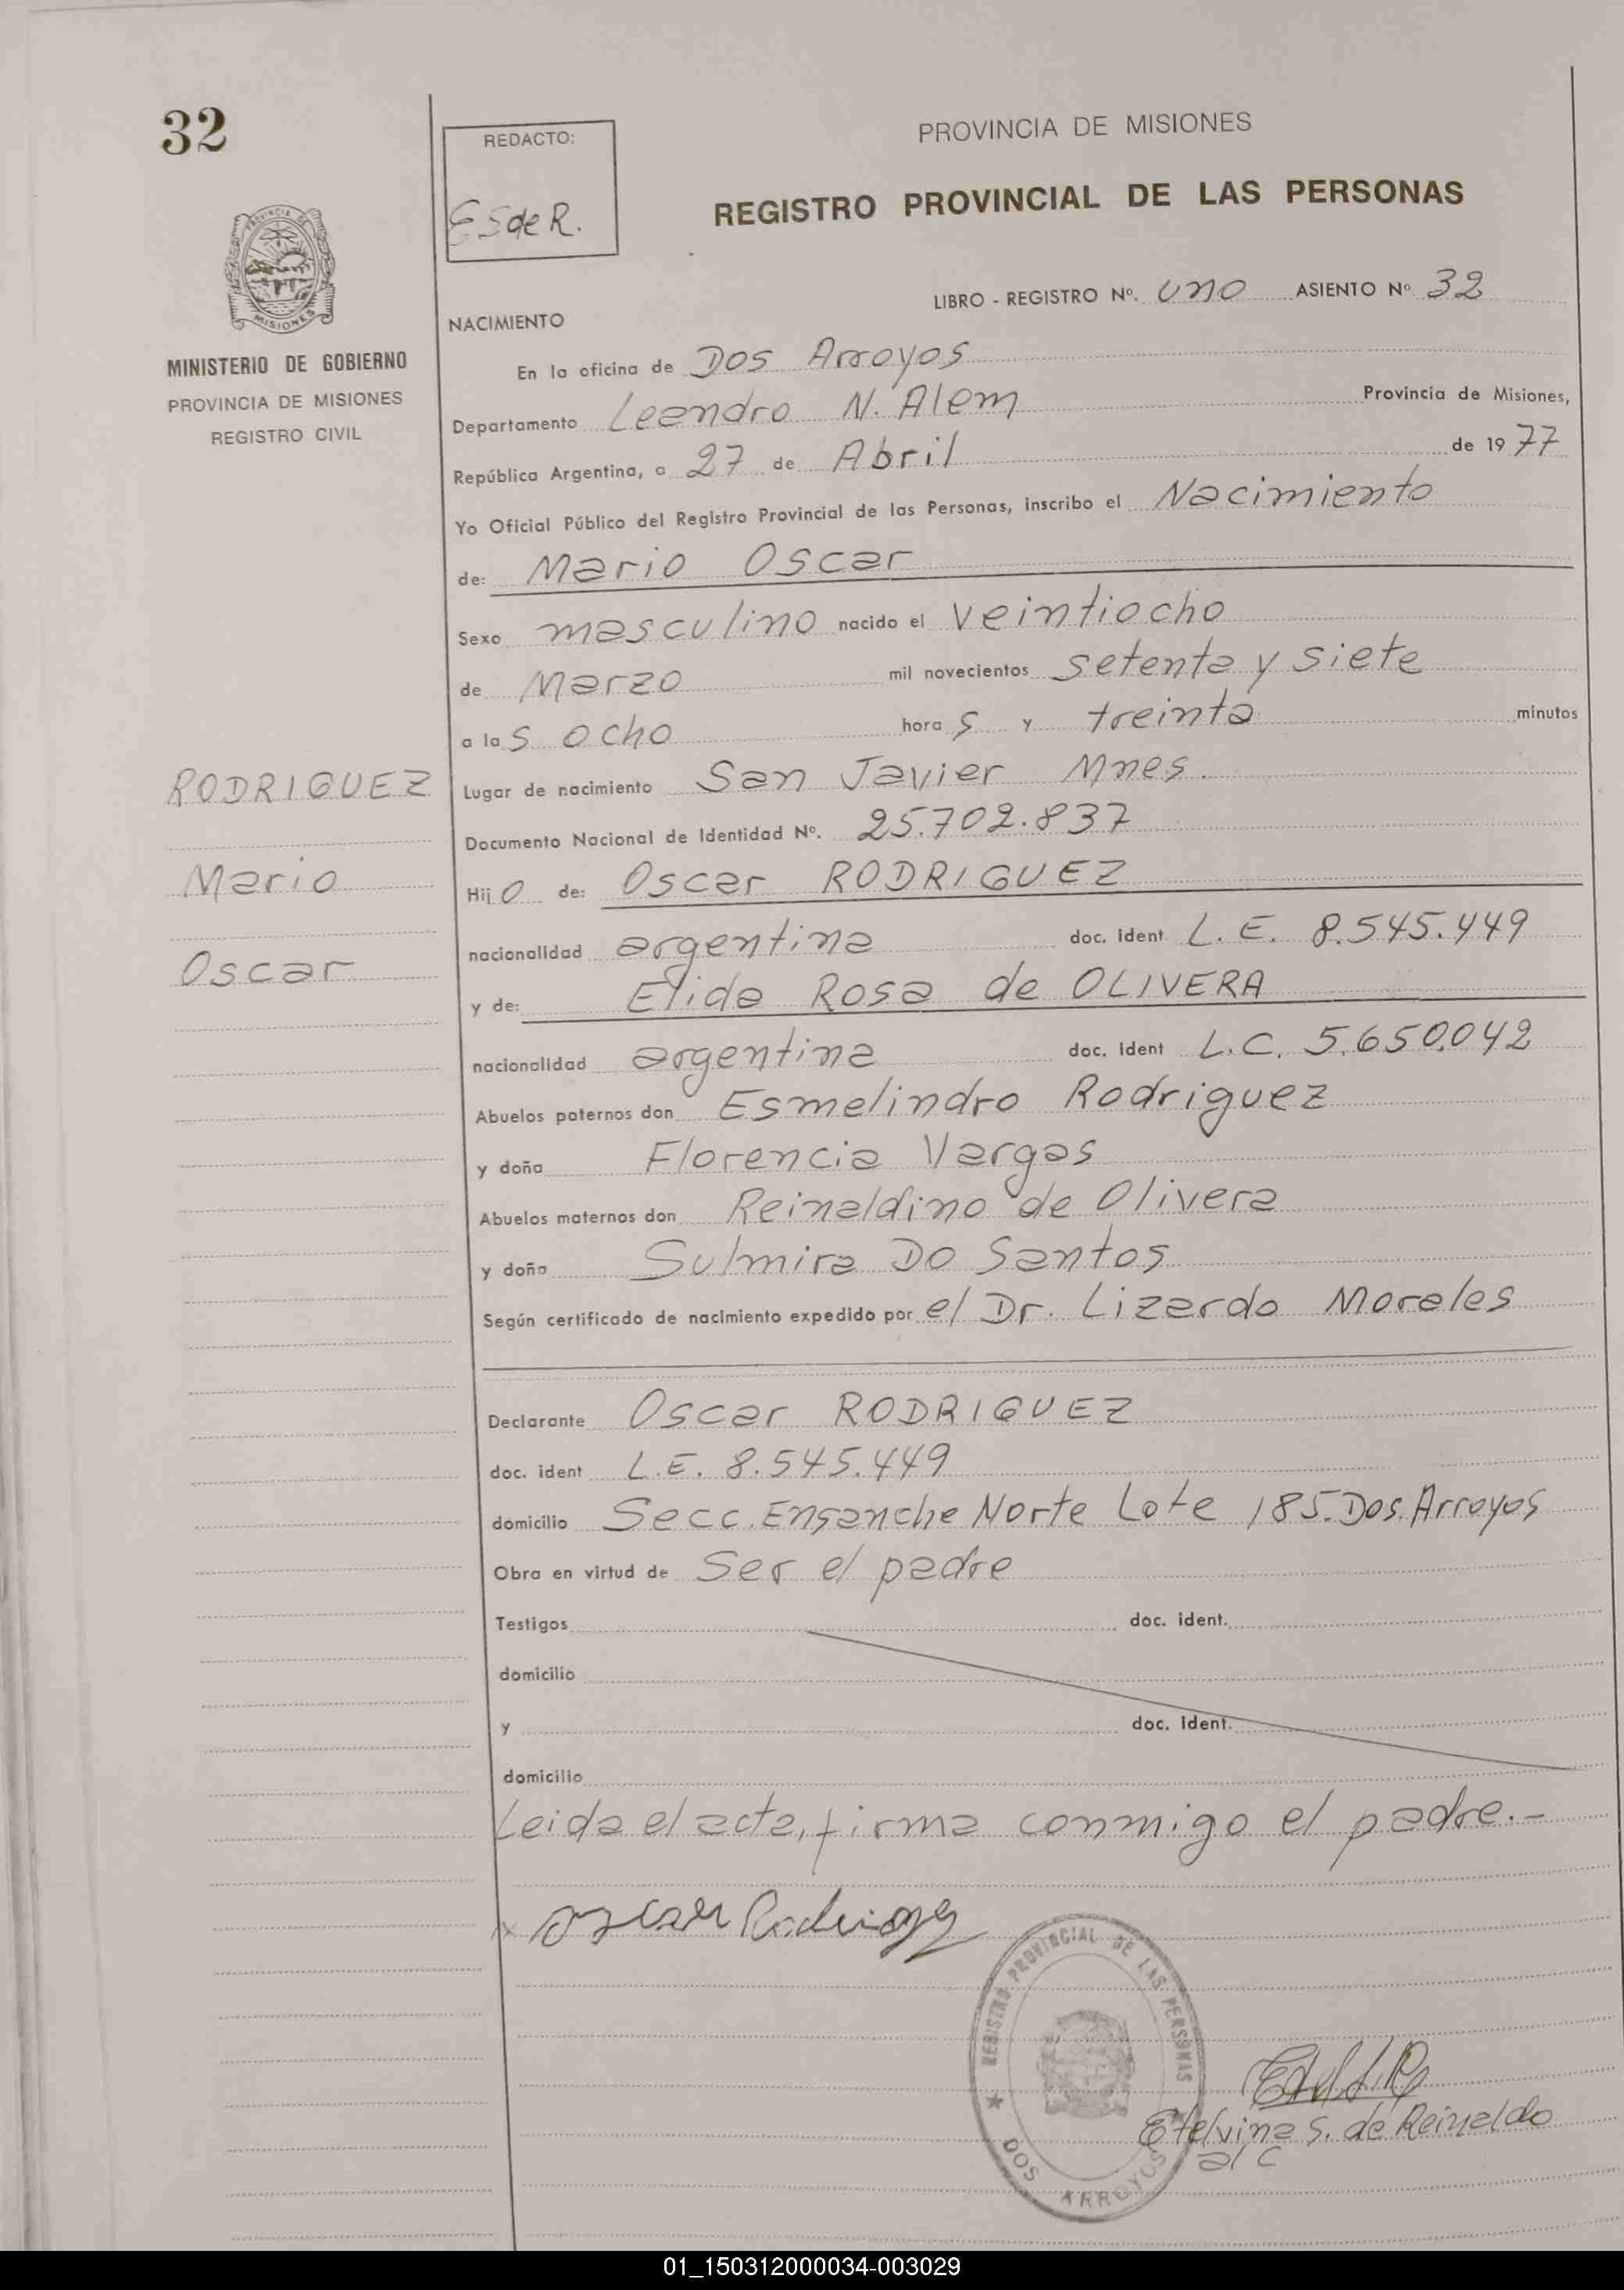 32
REDACTO:
ES de R.
PROVINCIA DE MISIONES
REGISTRO PROVINCIAL DE LAS PERSONAS
PROVINCIA DE
MISIONES
MINISTERIO DE GOBIERNO
PROVINCIA DE MISIONES
REGISTRO CIVIL
LIBRO - REGISTRO Nº. uno ASIENTO Nº 32
NACIMIENTO
En la oficina de Dos Arroyos
Departamento Leandro N. Alem Provincia de Misiones,
República Argentina, a 27 de Abril de 1977
Yo Oficial Público del Registro Provincial de las Personas, inscribo el Nacimiento
de: Mario Oscar
Sexo masculino nacido el veintiocho
de Marzo mil novecientos setenta y siete
a las ocho horas y treinta minutos
RODRIGUEZ
Mario
Oscar
Lugar de nacimiento San Javier Mnes.
Documento Nacional de Identidad Nº. 25.702.837
Hijo de: Oscar RODRIGUEZ
nacionalidad argentina doc. ident L. E. 8.545.449
y de: Elida Rosa de OLIVERA
nacionalidad argentina doc. ident L.C. 5.650.042
Abuelos paternos don Esmelindro Rodriguez
y doña Florencia Vargas
Abuelos maternos don Reinaldino de Olivera
y doña Sulmira Do Santos
Según certificado de nacimiento expedido por el Dr. Lizardo Morales
Declarante Oscar RODRIGUEZ
doc. ident L.E. 8.545.449
domicilio Secc. Ensanche Norte Lote 185. Dos. Arroyos
Obra en virtud de Ser el padre
Testigos doc. ident.
domicilio
y doc. ident.
domicilio
Leida el acta, firma conmigo el padre.-
x Oscar Rodriguez
REGISTRO PROVINCIAL DE LAS PERSONAS
DOS ARROYOS
Etelvina S. de Reinaldo
a/c
01_150312000034-003029